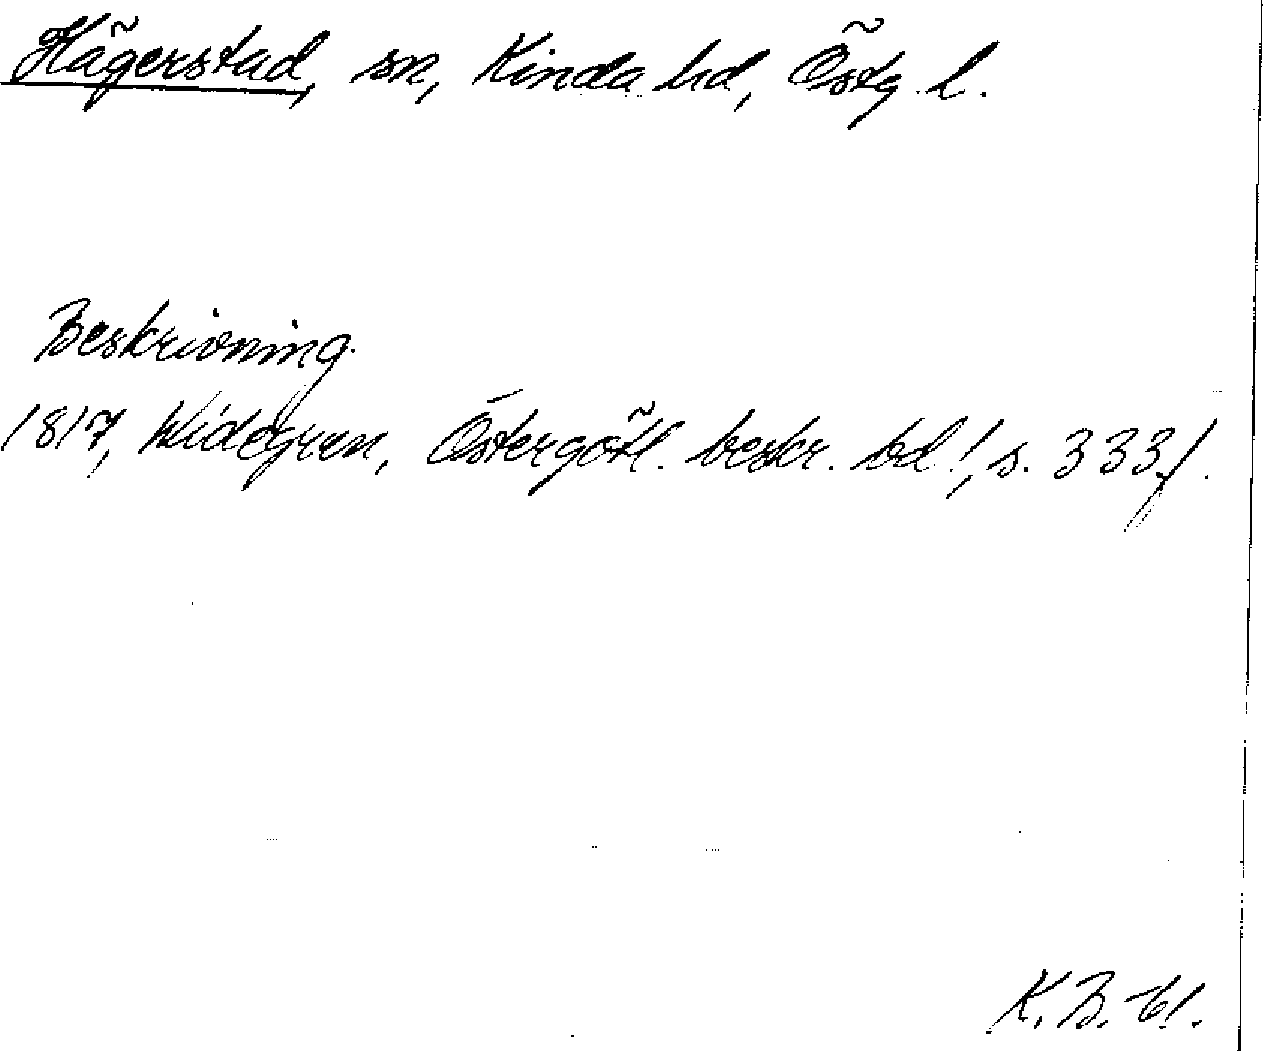 Hägerstad, sn, Kinda hd, Östg. l.
Beskrivning.
1817, Widegren, Östergötl. beskr. bd 1, s. 333 f.
K. B. -61.